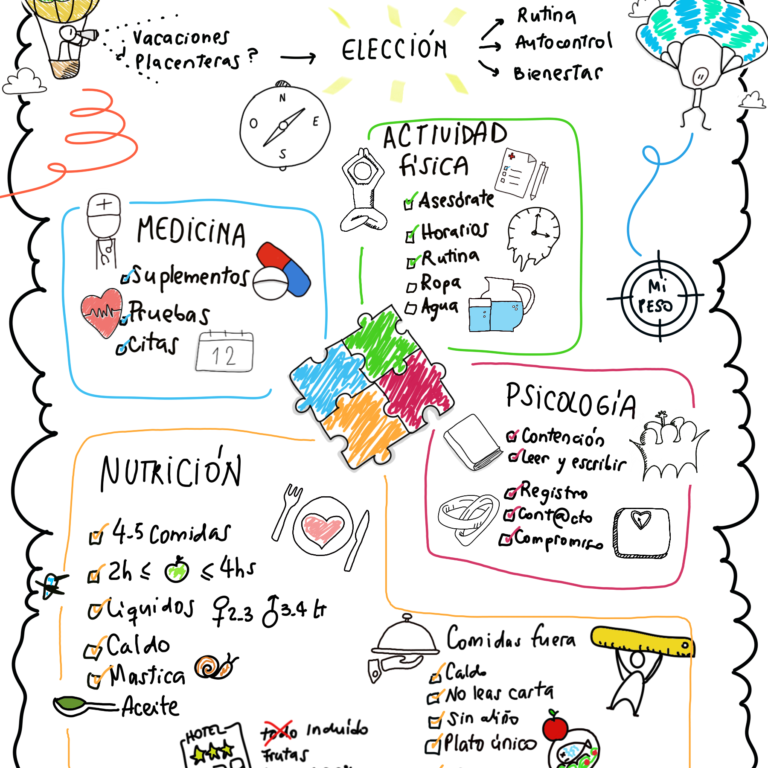 Vacaciones
Placenteras?
ELECCIÓN
Rutina
Autocontrol
Bienestar
N
O E
S
ACTIVIDAD
física
Asesórate
Horarios
Rutina
Ropa
Agua
MEDICINA
Suplementos
Pruebas
Citas
12
Mi
PESO
PSICOLOGÍA
Contención
Leer y escribir
Registro
Cont@cto
Compromiso
NUTRICIÓN
4-5 Comidas
2h ≤ ≤ 4hs
Líquidos ♀2-3 ♂3-4 lt
Caldo
Mastica
Aceite
Comidas fuera
Caldo
No leas carta
Sin aliño
Plato único
HOTEL
todo incluido
Frutas